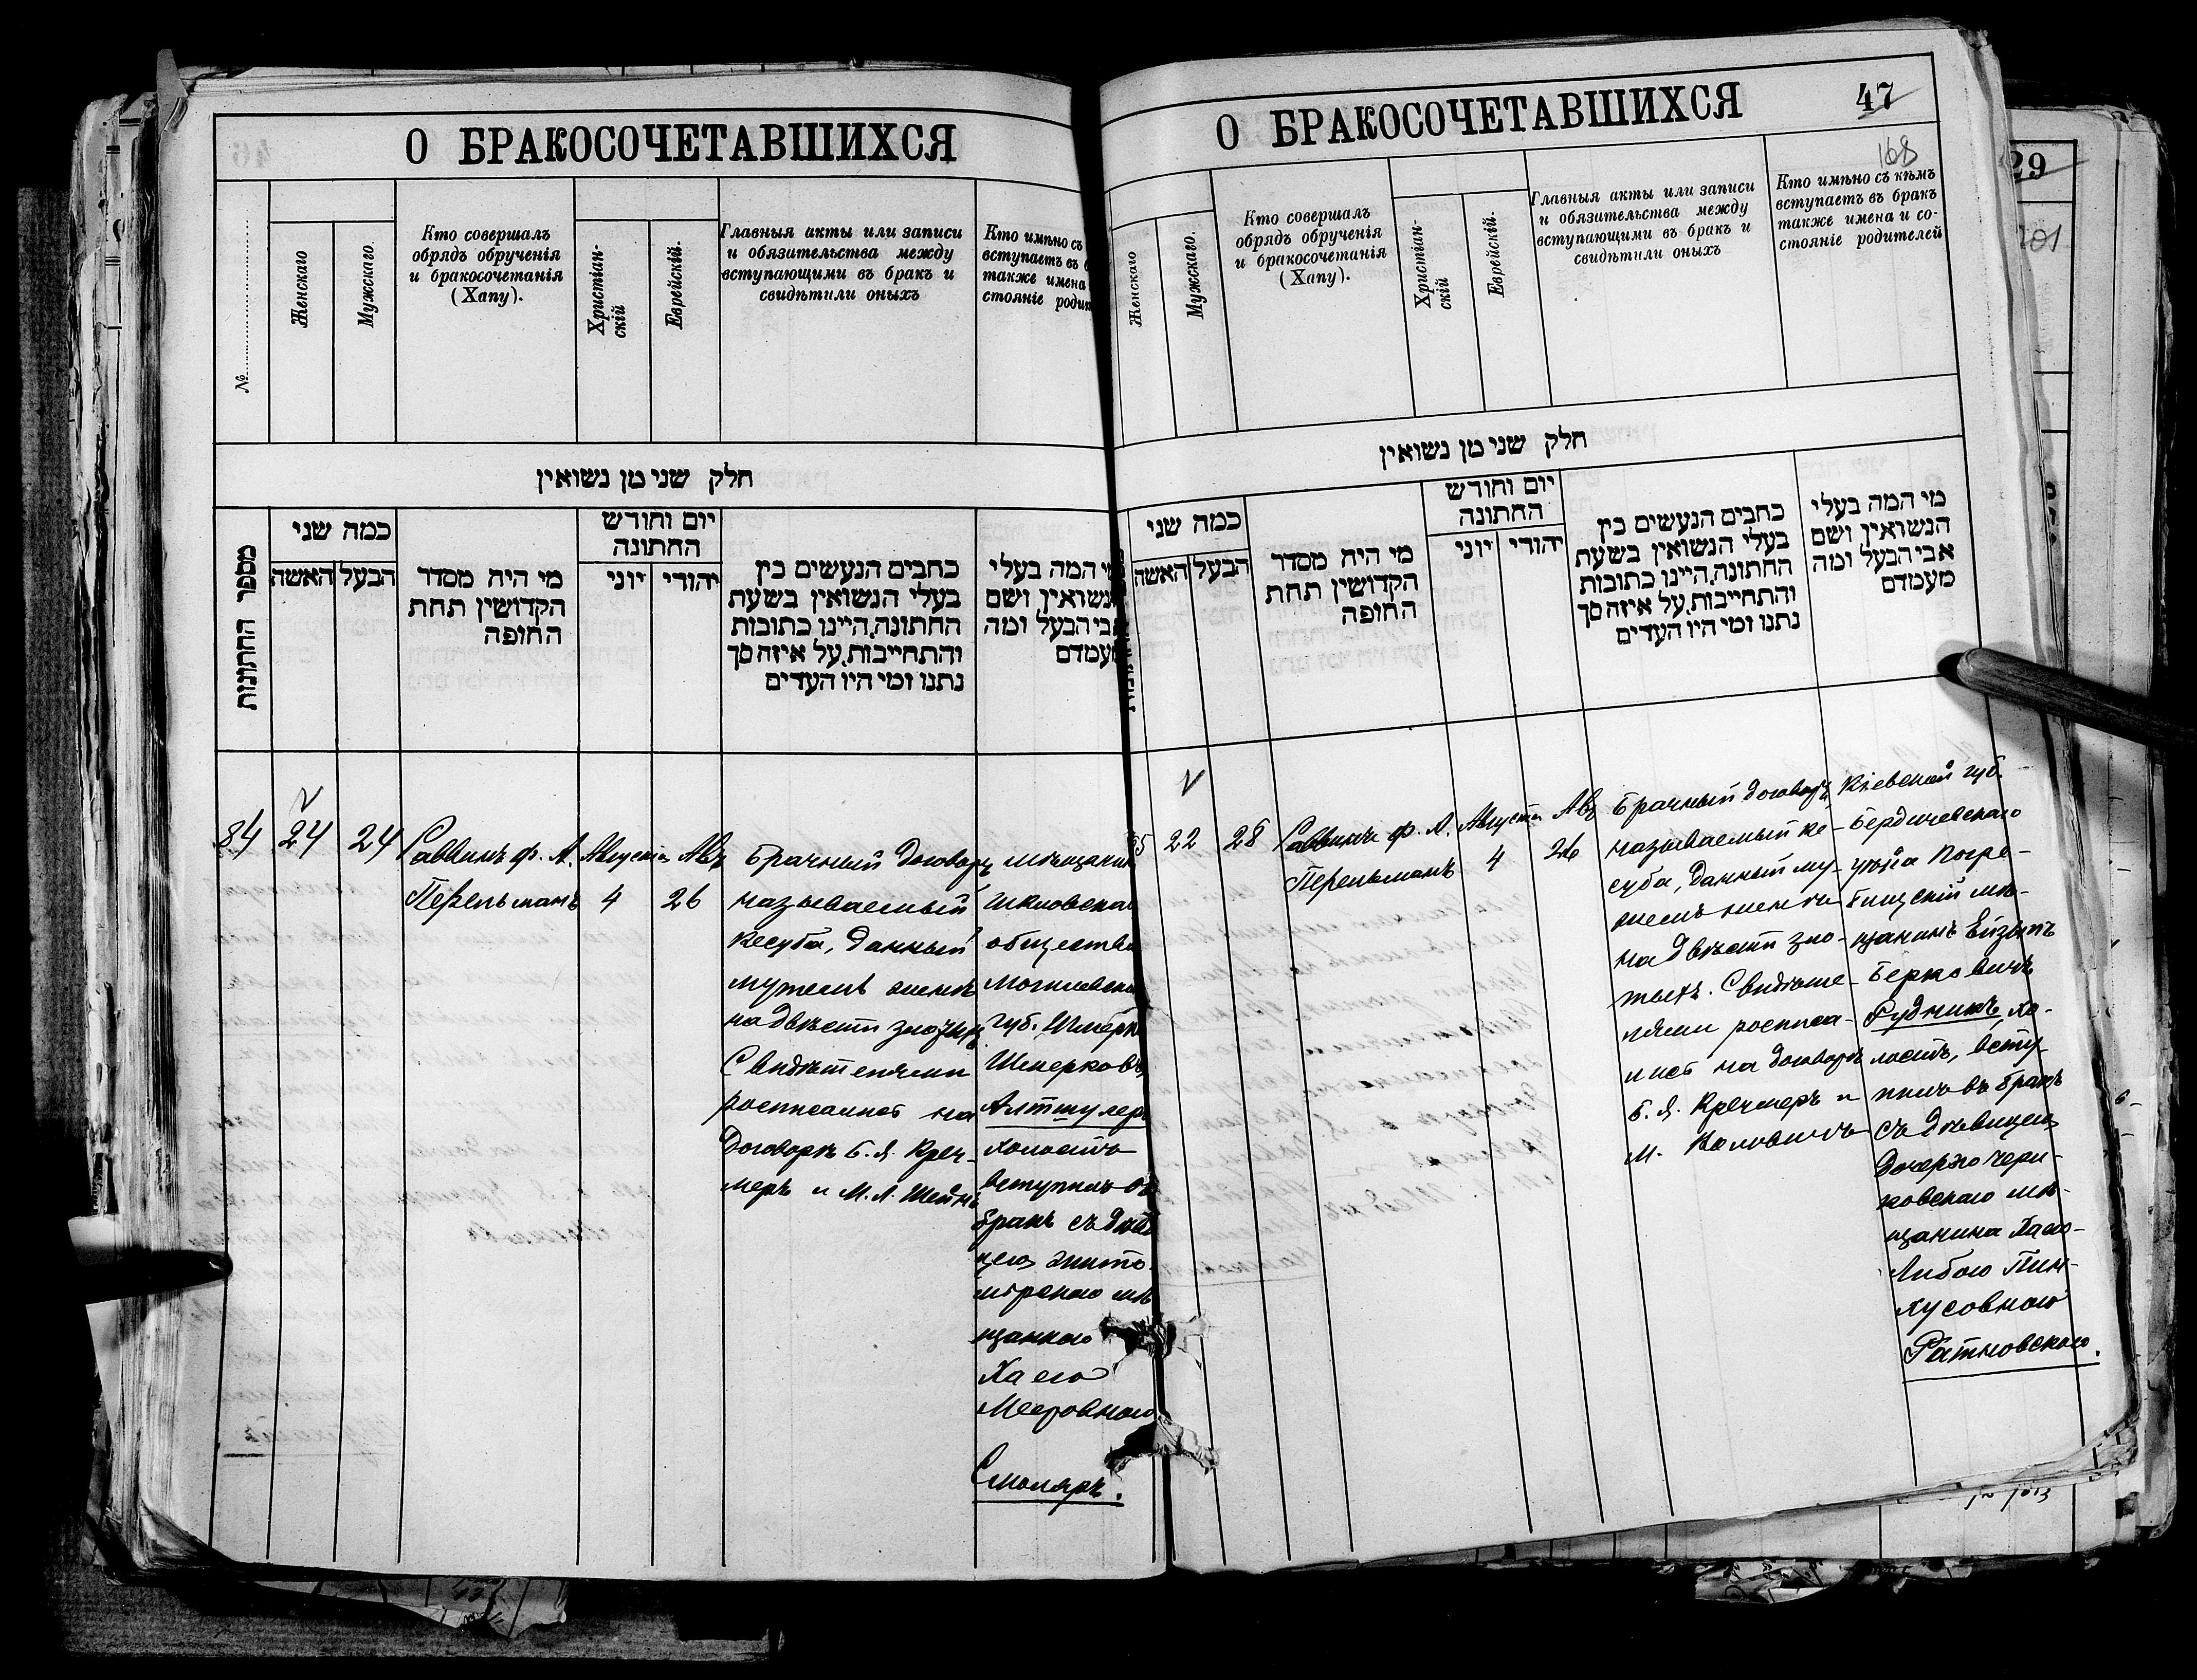 О БРАКОСОЧЕТАВШИХСЯ
№
Женскаго
Мужскаго
Кто совершалъ
обрядъ обрученія
и бракосочетанія
(Хапу).
Христіан-
скій
Еврейскій.
Главныя акты или записи
и обязательства между
вступающими въ бракъ и
свидѣтили оныхъ
Кто имѣно съ
вступаетъ въ
также имена
стояніе родит
חלק שני מן נשואין
מספר החתונות
כמה שני
האשה
הבעל
מי היה מסדר
הקדושין תחת
החופה
יום וחודש
החתונה
יוני
יהודי
כתבים הנעשים בין
בעלי הנשואין בשעת
החתונה.היינו כתובות
והתחייבות.על איזה סך
נתנו ומי היו העדים
מי המה בעלי
הנשואין ושם
אבי הבעל ומה
מעמדם
84
24
24
Раввинъ Ф. А.
Перельманъ
Августа
4
Авъ
26
Брачный договоръ
называемый
кесуба, данный
мужемъ женѣ
на двѣсти злотыхъ
Свидѣтелями
росписались на
договорѣ Б. Я. Креч-
меръ и М. Л. Шейнъ
мѣщанинъ
Шкловскаго
общества
Могилевской
губ. Шмерка
Шмерковъ
Алтшулеръ
холостъ
вступилъ въ
бракъ съ дѣви-
цею жито-
мірскаго мѣ
щанкою
Хаею
Мееровною
Смоляръ.
О БРАКОСОЧЕТАВШИХСЯ
47
168
Женскаго
Мужскаго.
Кто совершалъ
обрядъ обрученія
и бракосочетанія
(Хапу).
Христіан-
скій
Еврейскій.
Главныя акты или записи
и обязательства между
вступающими въ бракъ и
свидѣтили оныхъ
Кто имѣно съ кѣмъ
вступаетъ въ бракъ
также имена и со-
стояніе родителей
חלק שני מן נשואין
כמה שני
האשה
הבעל
מי היה מסדר
הקדושין תחת
החופה
יום וחודש
החתונה
יוני
יהודי
כתבים הנעשים בין
בעלי הנשואין בשעת
החתונה.היינו כתובות
והתחייבות.על איזה סך
נתנו ומי היו העדים
מי המה בעלי
הנשואין ושם
אבי הבעל ומה
מעמדם
5
22
28
Раввинъ Ф. А.
Перельманъ
Августа
4
Авъ
26
Брачный договоръ,
называемый ке-
суба, данный му-
жемъ женѣ
на двѣсти зло-
тыхъ. Свидѣте-
лями росписа-
лись на договорѣ
Б. Я. Кречмеръ и
М.
Кіевской губ.
Бердичевскаго
уѣзда Погре-
бищскій мѣ-
щанинъ
Берковичъ
Рудникъ, хо-
лостъ, всту-
пилъ въ бракъ
съ дѣвицею
дочерью чери-
ковскаго мѣ-
щанина Хаею-
Либою Пин-
хусовною
Ратновскою.
29
201